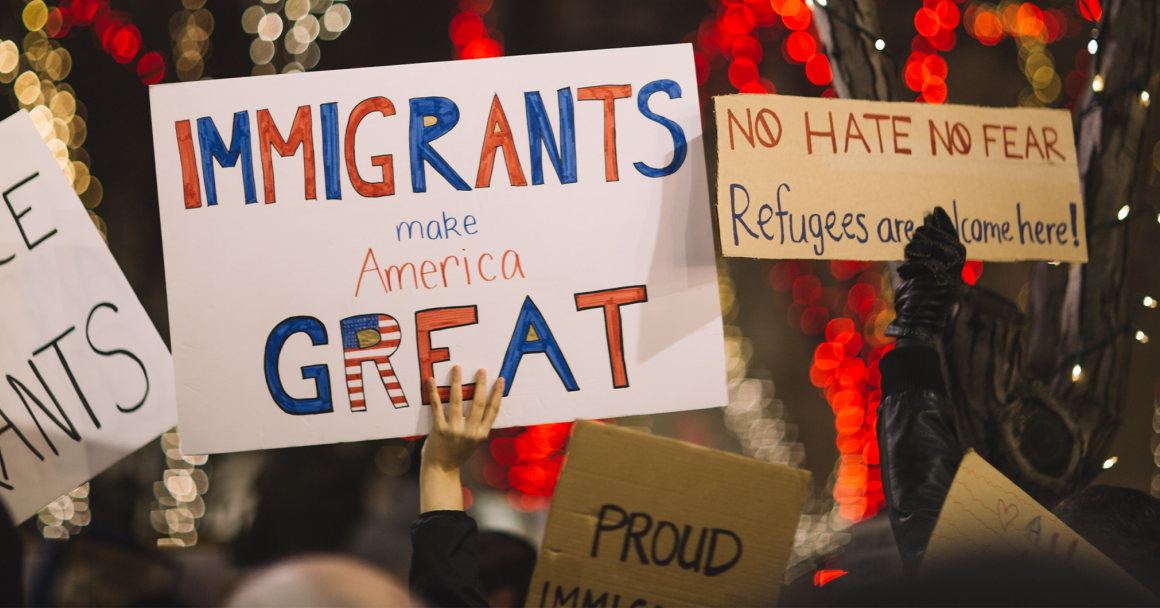 E
ANTS
IMMIGRANTS
make
America
GREAT
NO HATE NO FEAR
Refugees are welcome here!
PROUD